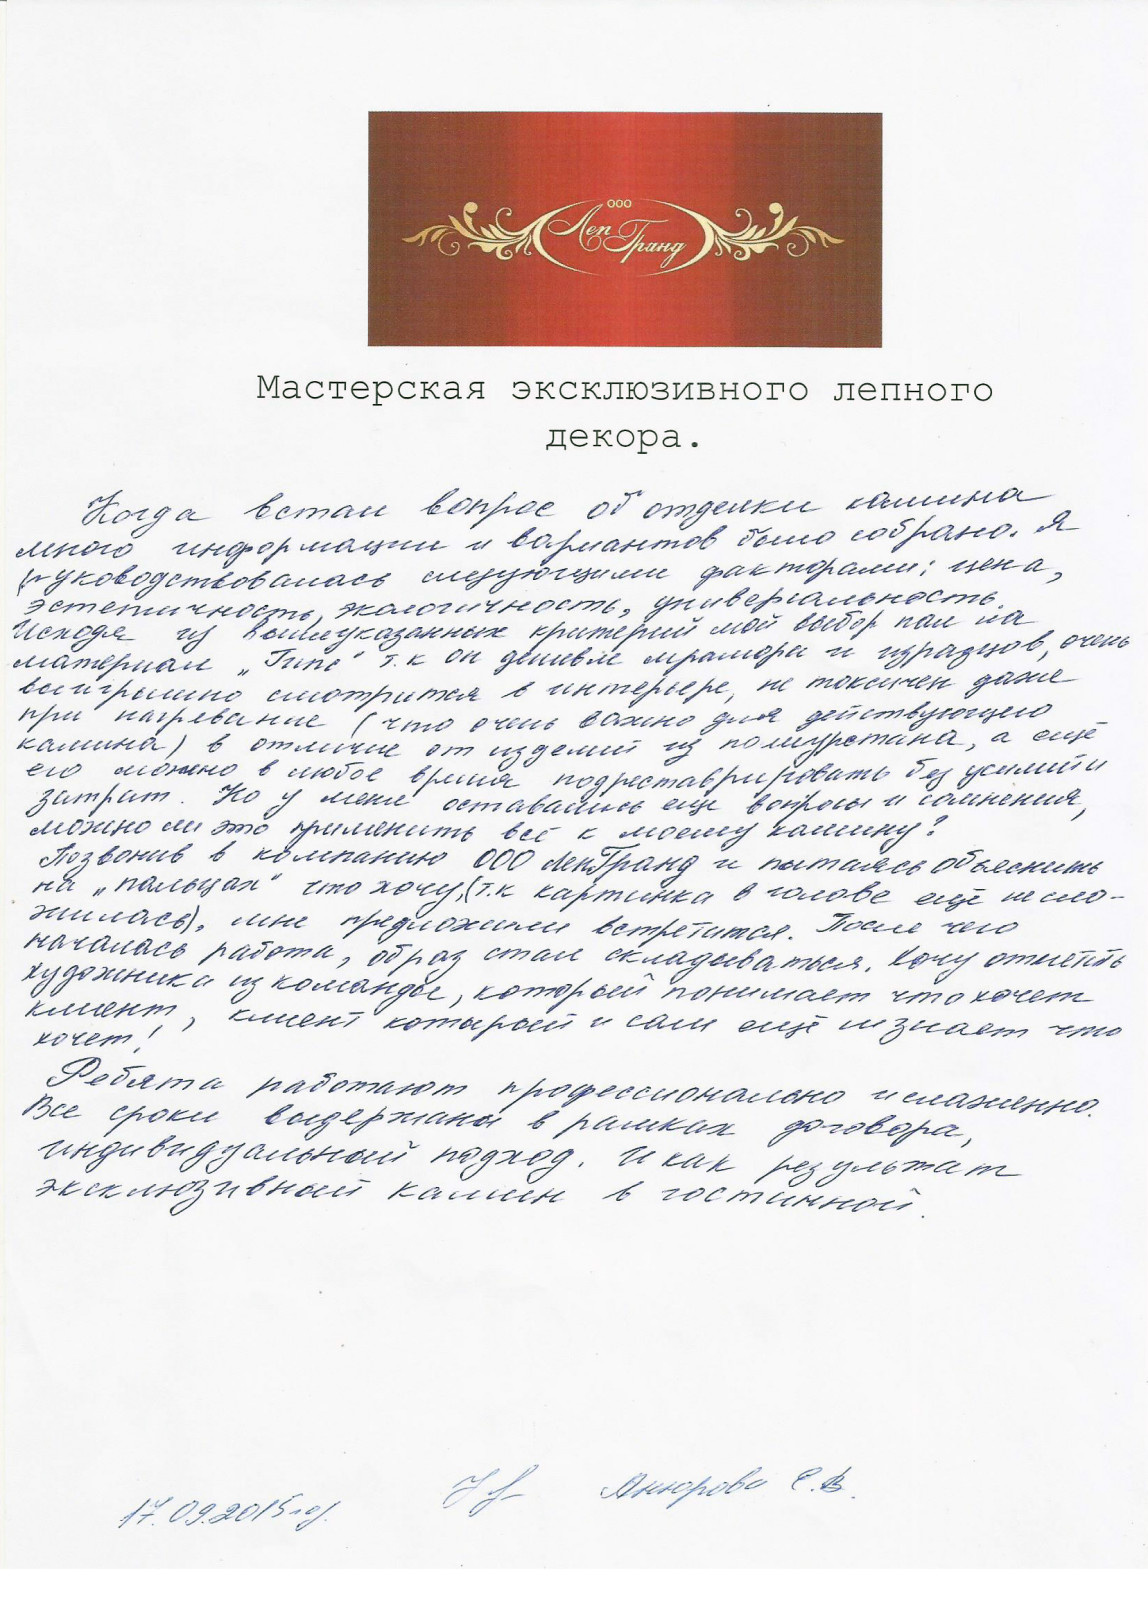 ООО
Леп Гранд
Мастерская эксклюзивного лепного
декора.
Когда встал вопрос об отделки камина
много информации и вариантов было собрано. Я
руководствовалась следующими факторами: цена,
эстетичность, экологичность, универсальность.
Исходя из вышеуказанных критерий мой выбор пал на
материал „Гипс" т.к он дешевле мрамора и изразцов, очень
выигрышно смотрится в интерьере, не токсичен даже
при нагревание (что очень важно для действующего
камина) в отличие от изделий из полиуретана, а ещё
его можно в любое время подреставрировать без усилий и
затрат. Но у меня оставались еще вопросы и сомнения,
можно ли это применить всё к моему камину?
Позвонив в компанию ООО ЛепГранд и пытаясь объяснить
на „пальцах" что хочу, (т.к картинка в голове ещё не сло-
жилась), мне предложили встретится. После чего
началась работа, образ стал складываться. Хочу отметить
художника из команды, который понимает что хочет
клиент, клиент который и сам ещё не знает что
хочет!
Ребята работают профессионально и слаженно.
Все сроки выдержаны в рамках договора,
индивидуальный подход. И как результат
эксклюзивный камин в гостинной.
17.09.2015 год. С.В.